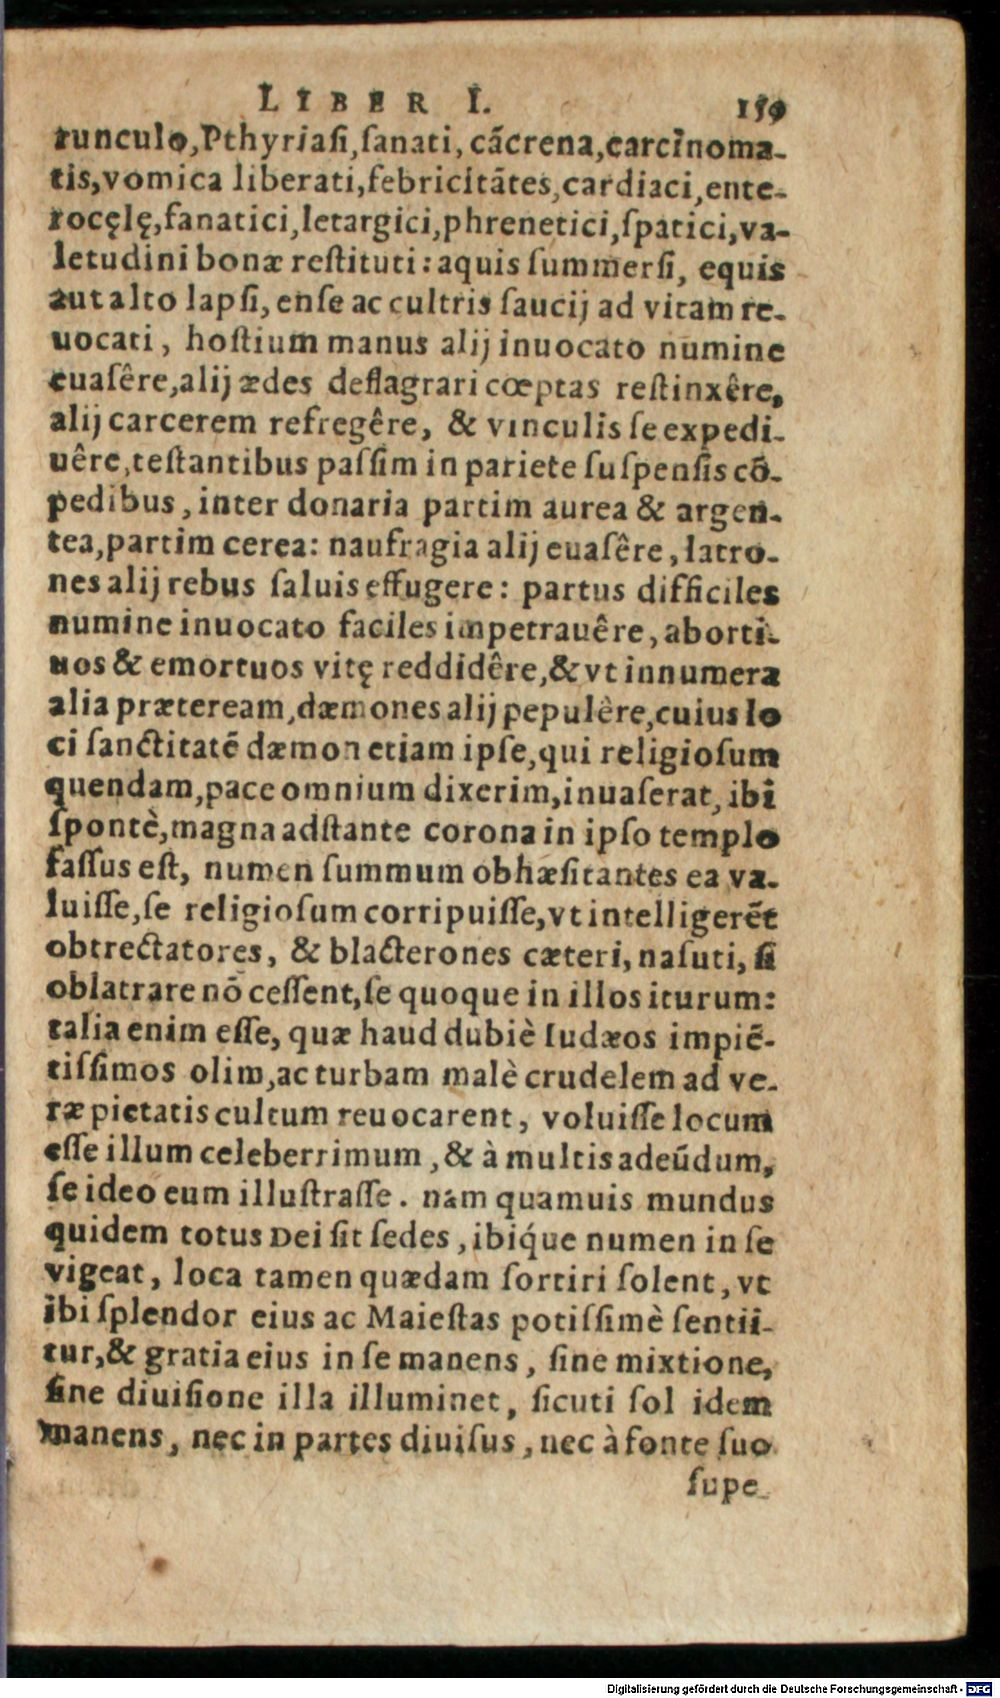 LIBER I. 159
runculo,Pthyriaſi,ſanati, cãcrena,carcinoma-
tis,vomica liberati,febricitãtes,cardiaci,ente-
rocęlę,fanatici,letargici,phrenetici,ſpatici,va-
letudini bonæ reſtituti: aquis ſummerſi, equis
aut alto lapſi, enſe ac cultris ſaucij ad vitam re-
uocati, hoſtium manus alij inuocato numine
euaſêre,alij ædes deflagrari cœptas reſtinxêre,
alij carcerem refregêre, & vinculis ſe expedi-
uêre,teſtantibus paſſim in pariete ſuſpenſis cõ-
pedibus, inter donaria partim aurea & argen-
tea,partim cerea: naufragia alij euaſêre, latro-
nes alij rebus ſaluis effugere: partus difficiles
numine inuocato faciles impetrauêre, aborti-
uos & emortuos vitę reddidêre,& vt innumera
alia præteream,dæmones alij pepulère,cuius lo
ci ſanctitatẽ dæmon etiam ipſe,qui religioſum
quendam,pace omnium dixerim,inuaſerat, ibi
ſpontè,magna adſtante corona in ipſo templo
faſſus eſt, numen ſummum obhæſitantes ea va-
luiſſe,ſe religioſum corripuiſſe,vt intelligerẽt
obtrectatores, & blacterones cæteri, naſuti, ſi
oblatrare nõ ceſſent,ſe quoque in illos iturum:
talia enim eſſe, quæ haud dubiè Iudæos impiẽ-
tiſſimos olim,ac turbam malè crudelem ad ve-
ræ pietatis cultum reuocarent, voluiſſe locum
eſſe illum celeberrimum, & à multis adeũdum,
ſe ideo eum illuſtraſſe. nam quamuis mundus
quidem totus Dei ſit ſedes, ibiq́ue numen in ſe
vigeat, loca tamen quædam ſortiri ſolent, vt
ibi ſplendor eius ac Maieſtas potiſſimè ſentii-
tur,& gratia eius in ſe manens, ſine mixtione,
ſine diuiſione illa illuminet, ſicuti ſol idem
manens, nec in partes diuiſus, nec à fonte ſuo
ſupe-
Digitalisierung gefördert durch die Deutsche Forschungsgemeinschaft - DFG